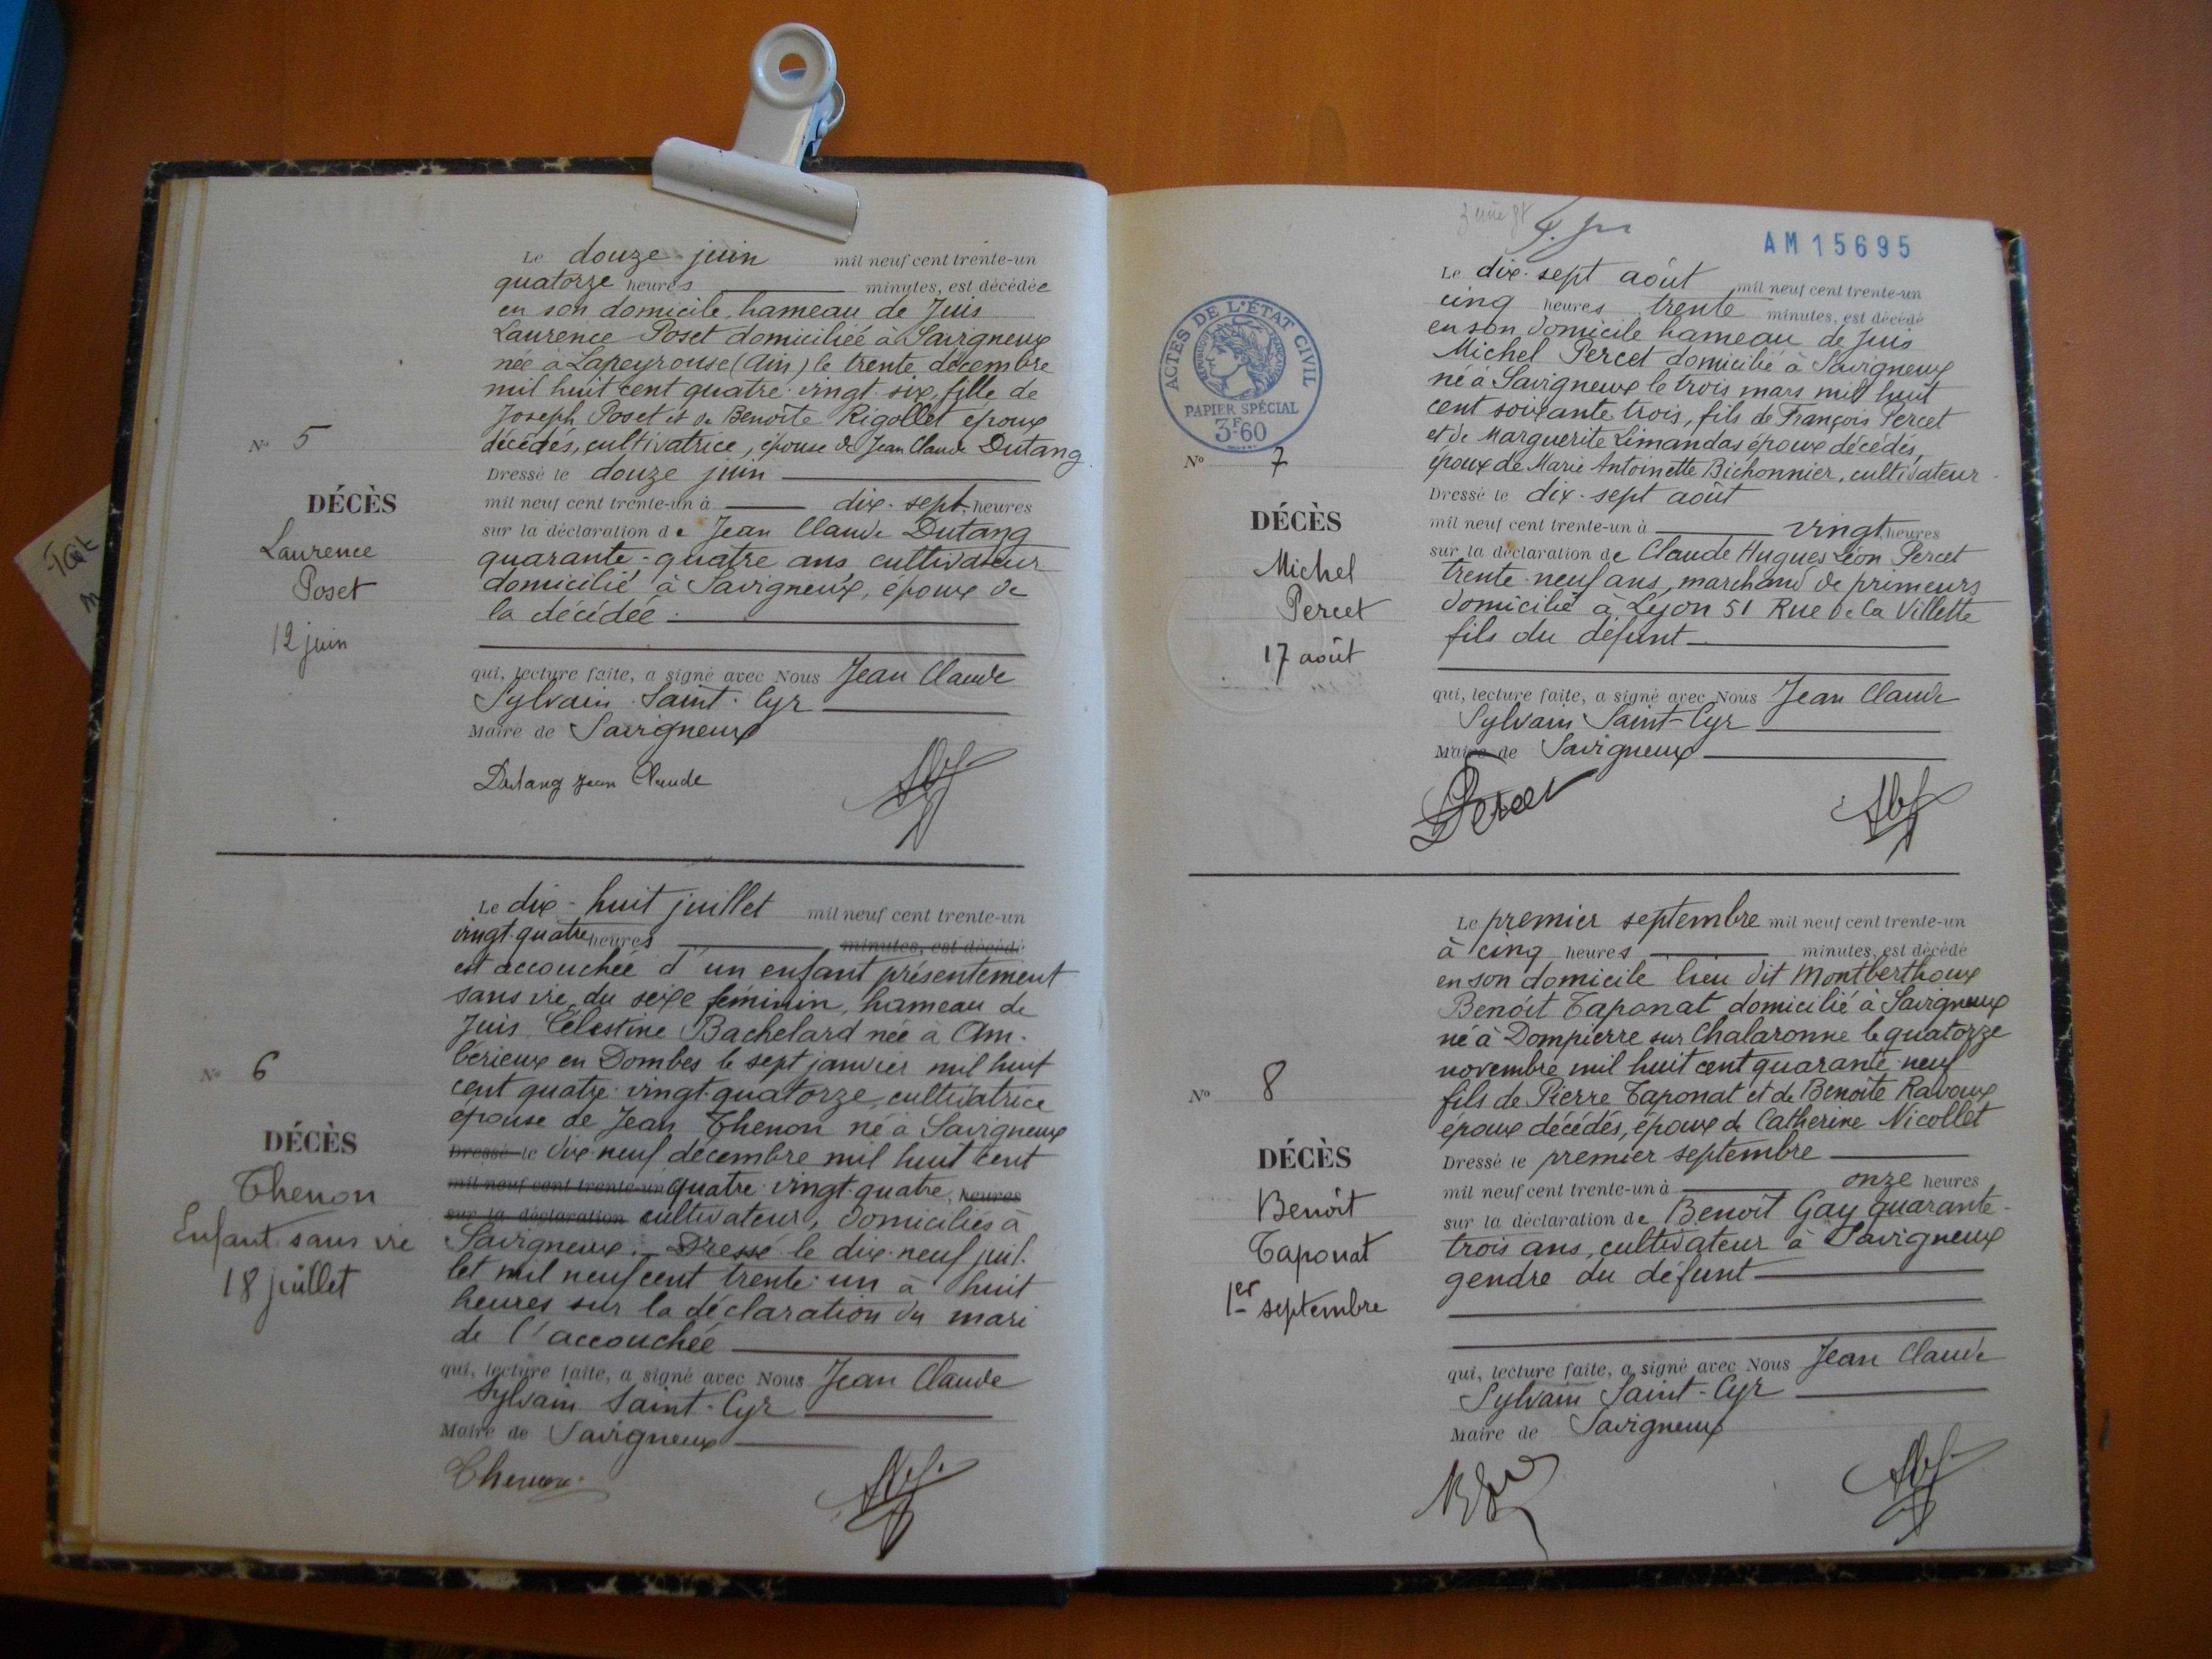 Le douze juin mil neuf cent trente-un
quatorze heures minutes, est décédée
en son domicile, hameau de Juis
Laurence Poset domiciliée à Savigneux
née à Lapeyrouse (Ain) le trente décembre
mil huit cent quatre-vingt-six, fille de
Joseph Poset et de Benoîte Rigollet époux
décédés, cultivatrice, épouse de Jean Claude Dutang
N° 5
DÉCÈS
Laurence
Poset
12 juin
Dressé le douze juin
mil neuf cent trente-un à dix-sept heures
sur la déclaration de Jean Claude Dutang
quarante-quatre ans cultivateur
domicilié à Savigneux, époux de
la décédée.
qui, lecture faite, a signé avec Nous Jean Claude
Sylvain Saint-Cyr
Maire de Savigneux
Dutang Jean Claude
Le dix-huit juillet mil neuf cent trente-un
vingt-quatre heures minutes, est décédé
est accouchée d'un enfant présentement
sans vie, du sexe féminin, hameau de
Juis Célestine Bachelard née à Am-
bérieux en Dombes le sept janvier mil huit
cent quatre-vingt-quatorze, cultivatrice
épouse de Jean Thenon né à Savigneux
N° 6
DÉCÈS
Thenon
Enfant sans vie
18 juillet
Dressé le dix-neuf décembre mil huit cent
mil neuf cent trente-un quatre-vingt-quatre, heures
sur la déclaration cultivateur, domiciliés à
Savigneux. Dressé le dix-neuf juil-
let mil neuf cent trente-un à huit
heures sur la déclaration du mari
de l'accouchée
qui, lecture faite, a signé avec Nous Jean Claude
Sylvain Saint-Cyr
Maire de Savigneux
Thenon
AM 15695
ACTES DE L'ÉTAT CIVIL
RÉPUBLIQUE FRANÇAISE
PAPIER SPÉCIAL
3F60
Le dix-sept août mil neuf cent trente-un
cinq heures trente minutes, est décédé
en son domicile hameau de Juis
Michel Percet domicilié à Savigneux
né à Savigneux le trois mars mil huit
cent soixante trois, fils de François Percet
et de Marguerite Limandas époux décédés,
époux de Marie Antoinette Bichonnier, cultivateur
N° 7
DÉCÈS
Michel
Percet
17 août
Dressé le dix-sept août
mil neuf cent trente-un à vingt heures
sur la déclaration de Claude Hugues Léon Percet
trente-neuf ans, marchand de primeurs
domicilié à Lyon 51 Rue de la Villette
fils du défunt
qui, lecture faite, a signé avec Nous Jean Claude
Sylvain Saint-Cyr
Maire de Savigneux
Percet
Le premier septembre mil neuf cent trente-un
à cinq heures minutes, est décédé
en son domicile lieu dit Montberthoux
Benoît Taponat domicilié à Savigneux
né à Dompierre sur Chalaronne le quatorze
novembre mil huit cent quarante-neuf
fils de Pierre Taponat et de Benoîte Ravoux
époux décédés, époux de Catherine Nicollet
N° 8
DÉCÈS
Benoît
Taponat
1er septembre
Dressé le premier septembre
mil neuf cent trente-un à onze heures
sur la déclaration de Benoît Gay quarante-
trois ans, cultivateur à Savigneux
gendre du défunt
qui, lecture faite, a signé avec Nous Jean Claude
Sylvain Saint-Cyr
Maire de Savigneux